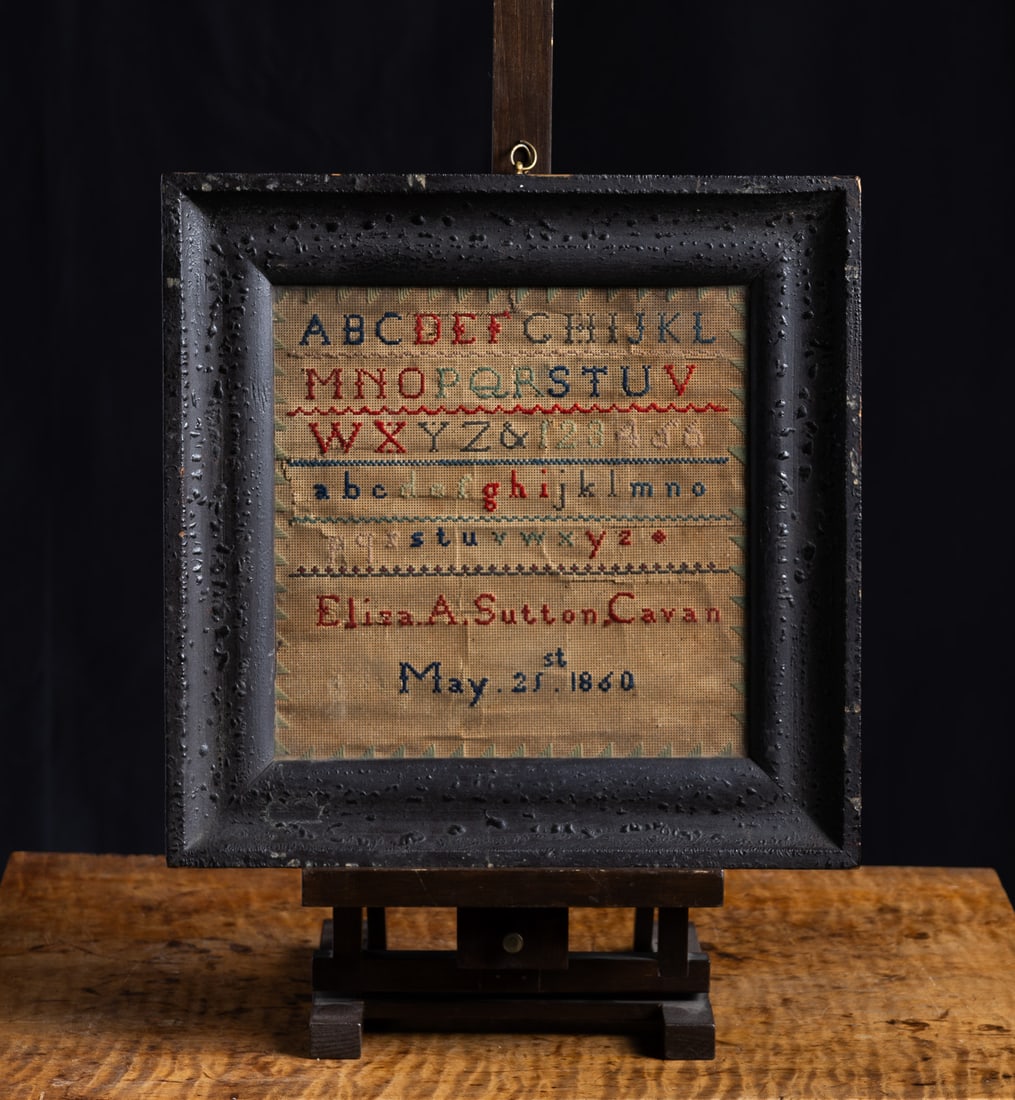 ABCDEFGHIJKL
MNOPQRSTUV
WXYZ&123456
abcdefghijklmno
pqrstuvwxyz
Eliza.A.Sutton,Cavan
May.21st.1860